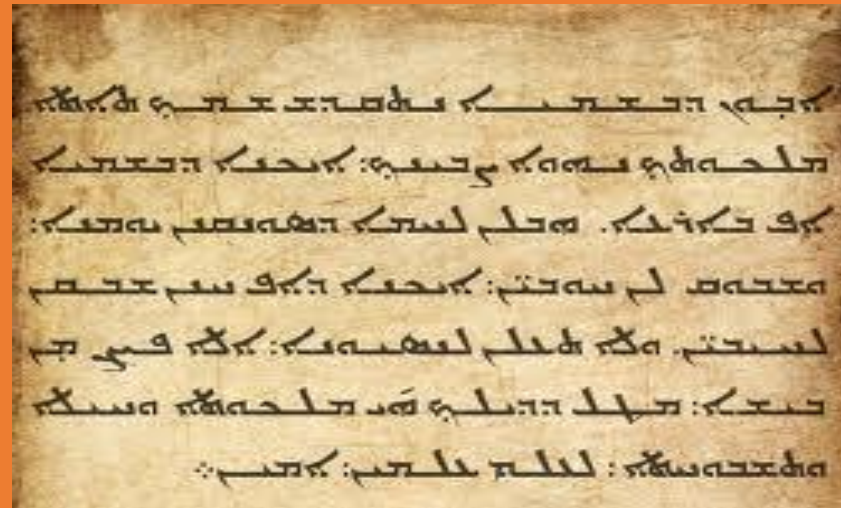 ܐܒܘܢ ܕܒܫܡܝܐ ܢܬܩܕܫ ܫܡܟ ܬܐܬܐ
ܡܠܟܘܬܟ ܢܗܘܐ ܨܒܝܢܟ: ܐܝܟܢܐ ܕܒܫܡܝܐ
ܐܦ ܒܐܪܥܐ. ܗܒܠܢ ܠܚܡܐ ܕܣܘܢܩܢܢ ܝܘܡܢܐ:
ܘܫܒܘܩ ܠܢ ܚܘܒܝ̈ܢ: ܐܝܟܢܐ ܕܐܦ ܚܢܢ ܫܒܩܢ
ܠܚܝܒܝ̈ܢ. ܘܠܐ ܬܥܠܢ ܠܢܣܝܘܢܐ: ܐܠܐ ܦܨܢ ܡ̣ܢ
ܒܝܫܐ: ܡܛܠ ܕܕܝܠܟ ܗܝ ܡܠܟܘܬܐ ܘܚܝܠܐ
ܘܬܫܒܘܚܬܐ: ܠܥܠܡ ܥܠܡܝܢ: ܐܡܝܢ܀